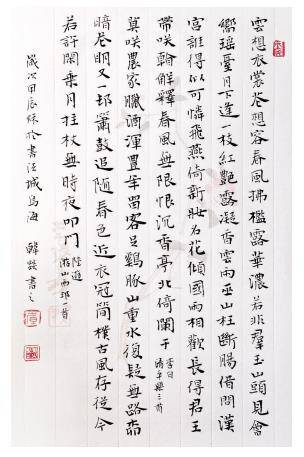 雲想衣裳花想容春風拂檻露華濃若非羣玉山頭見會
嚮瑤臺月下逢一枝紅艷露凝香雲雨巫山枉斷腸借問漢
宮誰得似可憐飛燕倚新妝名花傾國兩相歡長得君王
帶咲看解釋春風無限恨沉香亭北倚闌干 李白清平樂三首
莫咲農家臘酒渾豐年留客足雞豚山重水復疑無路柳
暗花明又一邨簫鼓追隨春色近衣冠簡樸古風存從今
若許閑乘月拄杖無時夜叩門 陸遊游山西邨一首
歲次甲辰秋於書法城烏海 韓書之